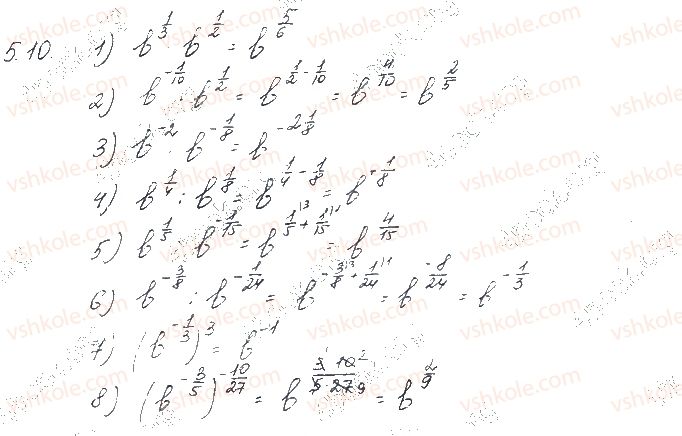 5.10. 1) b^{1/3} b^{1/2} = b^{5/6}
2) b^{-1/10} : b^{1/2} = b^{1/2 - 1/10} = b^{4/10} = b^{2/5}
3) b^{-2} · b^{-1/8} = b^{-2 1/8}
4) b^{1/4} : b^{1/8} = b^{1/4 - 1/8} = b^{1/8}
5) b^{1/5} b^{-1/15} = b^{1/5 + 1/15} = b^{4/15}
6) b^{-3/8} : b^{-1/24} = b^{-3/8 + 1/24} = b^{-8/24} = b^{-1/3}
7) (b^{-1/3})^3 = b^{-1}
8) (b^{-3/5})^{-10/27} = b^{3 10/5 27} = b^{2/9}
vshkole.com